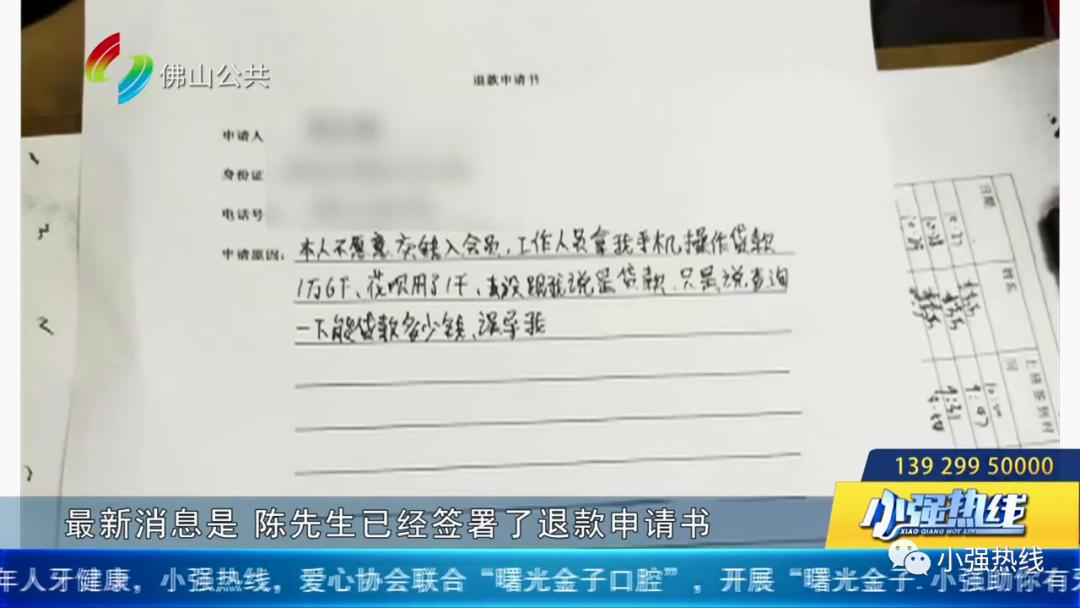 佛山公共
退款申请书
申请人
身份证
电话号
申请原因:
本人不愿意交钱入会员,工作人员拿我手机操作贷款
1万6千、花呗用了1千,都没跟我说是贷款,只是说查询
一下能贷款多少钱、误导我
日期
姓名
上班签到时
间
139 299 50000
小强热线
XIAO QIANG HOT LINE
最新消息是 陈先生已经签署了退款申请书
小强热线
年人牙健康,小强热线,爱心协会联合“曙光金子口腔”,开展“曙光金子 小强助你有